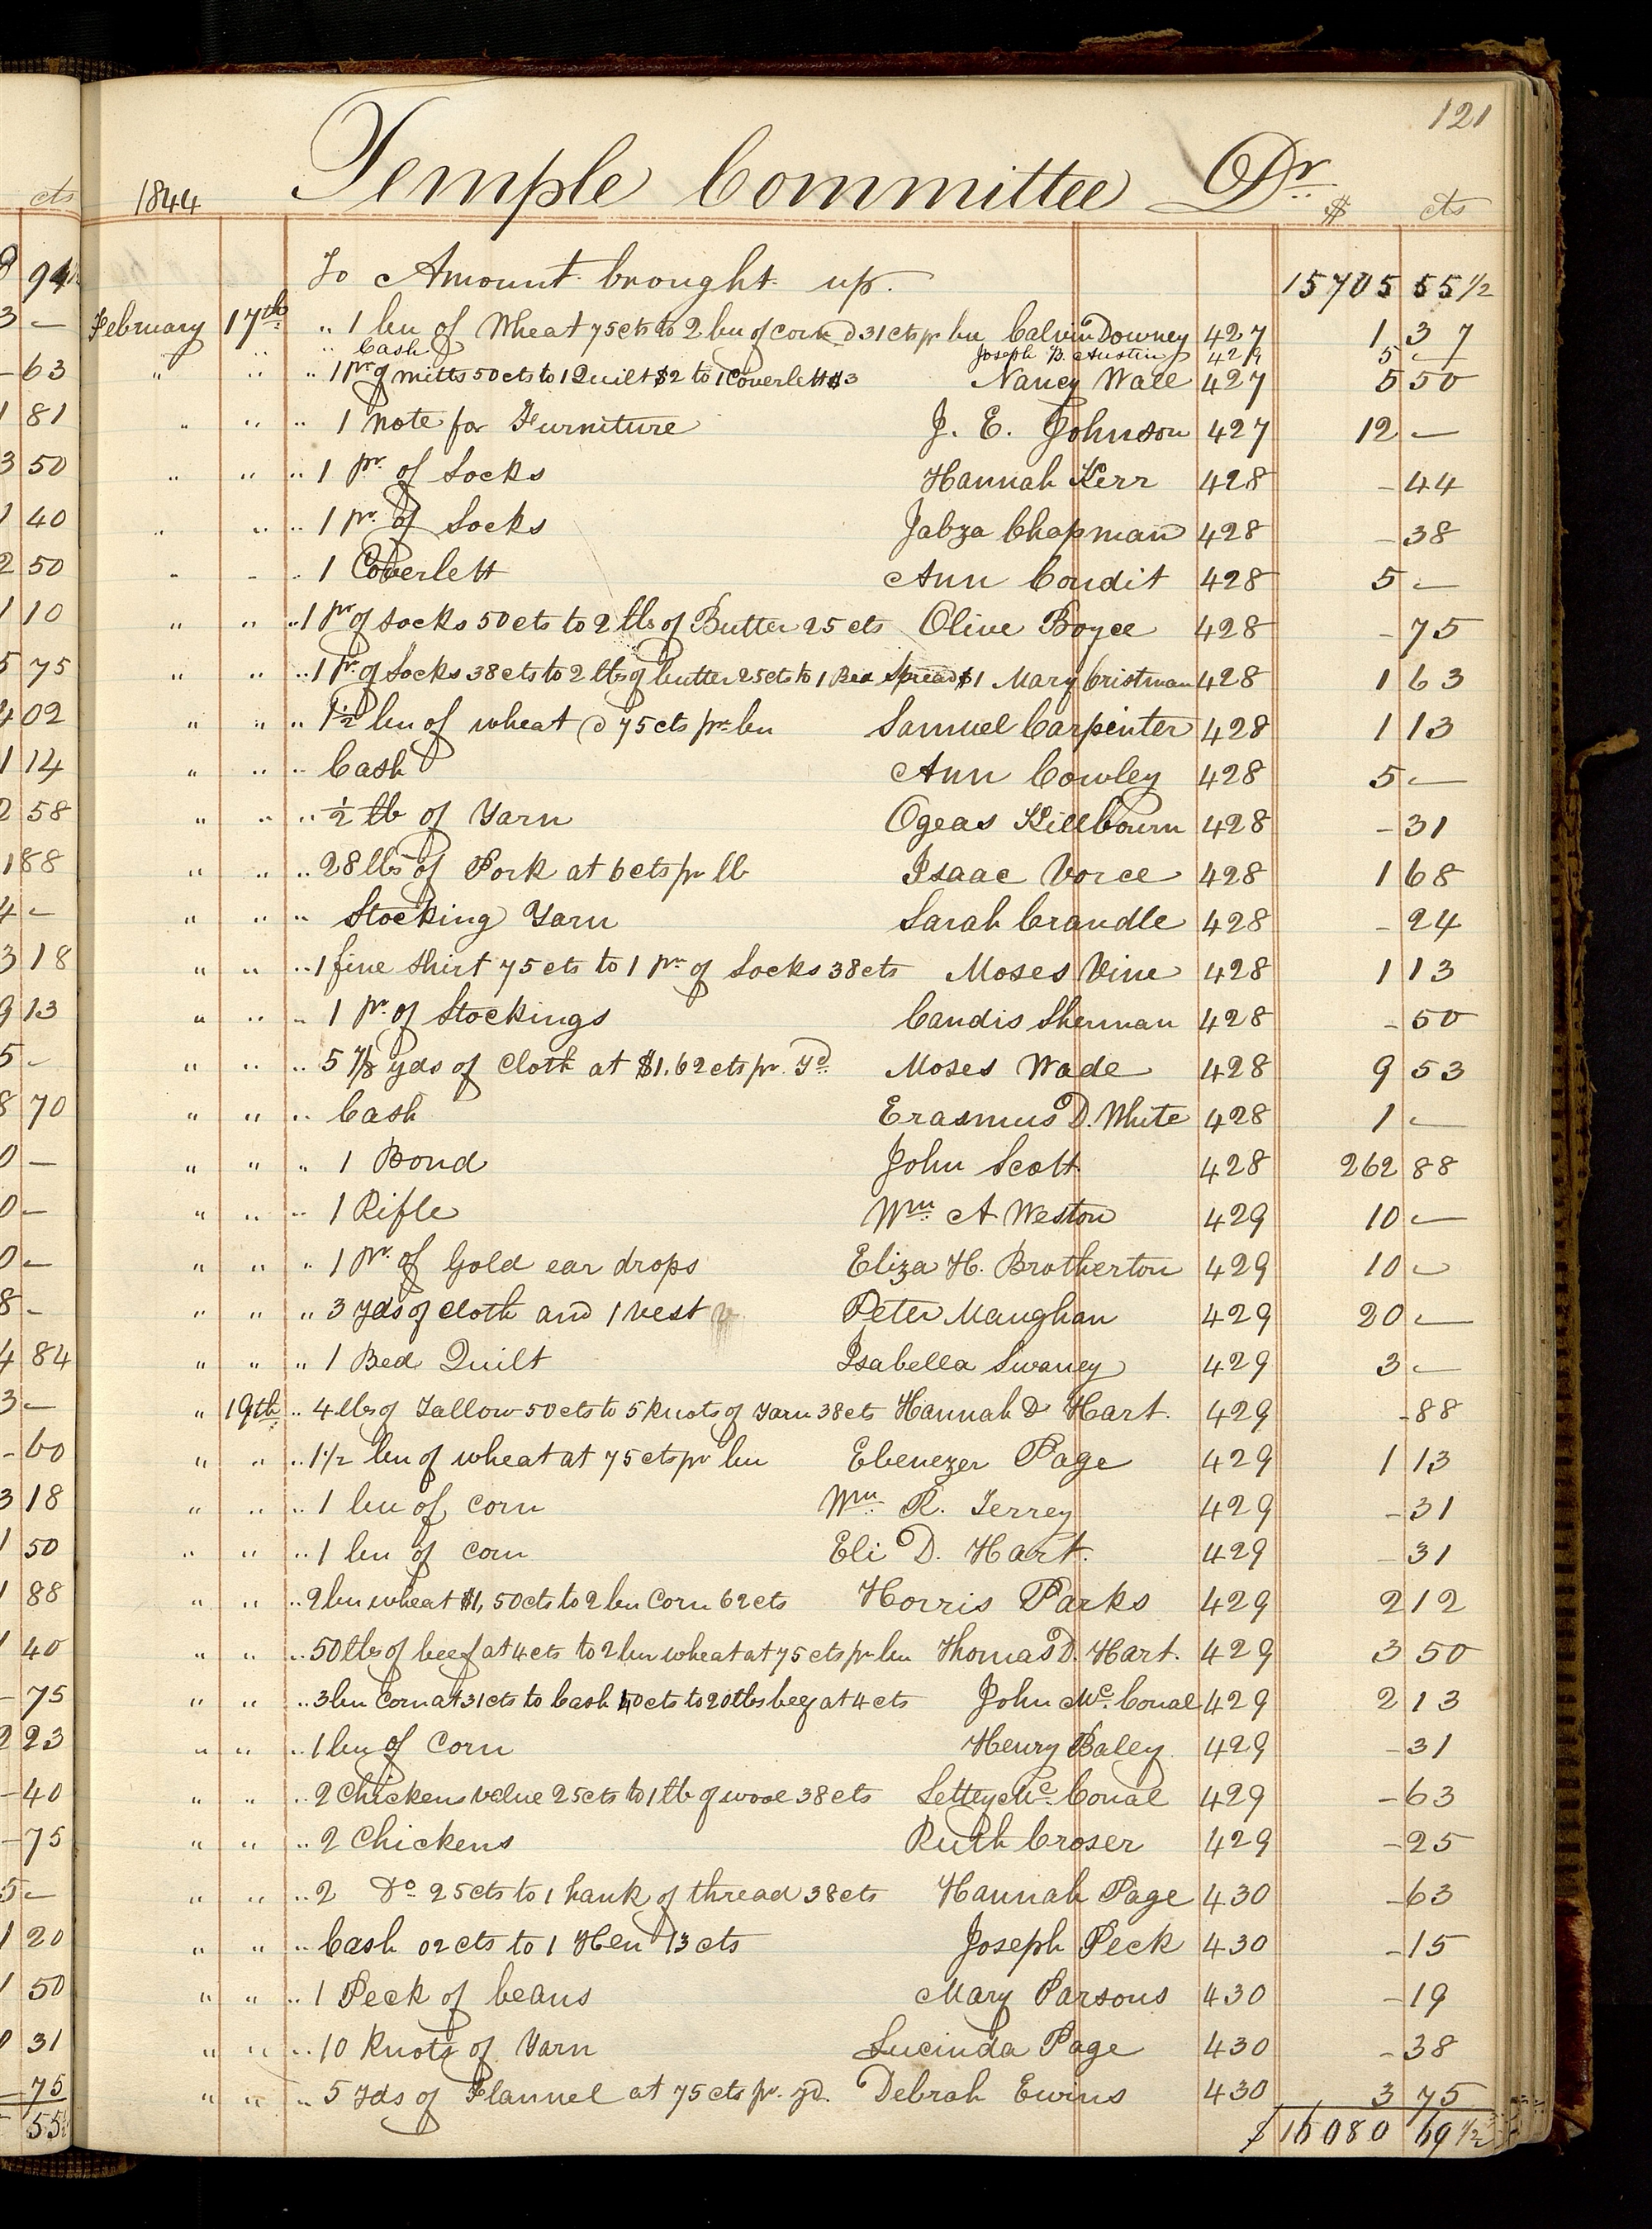 121
1844 Temple Committee Dr. $ cts
To Amount brought up. 15705 55 1/2
February 17th " 1 bu of Wheat 75 cts to 2 bu of corn @ 31 cts pr bu Calvin Downey 427 1 37
" " Cash Joseph B. Austin 429 5 —
" " " 1 pr of mitts 50 cts to 1 Quilt $2 to 1 Coverlett $3 Nancy Wall 427 5 50
" " " 1 Note for Furniture J. E. Johnson 427 12 —
" " " 1 pr. of Socks Hannah Kerr 428 - 44
" " " 1 pr. of Socks Jabza Chapman 428 - 38
" " " 1 Coverlett Ann Condit 428 5 —
" " " 1 pr of Socks 50 cts to 2 lbs of Butter 25 cts Olive Boyce 428 - 75
" " " 1 pr. of Socks 38 cts to 2 lbs of butter 25 cts to 1 Bed Spread $1 Mary Cristman 428 1 63
" " " 1 1/2 bu of wheat @ 75 cts pr bu Samuel Carpenter 428 1 13
" " " Cash Ann Cowley 428 5 —
" " " 1/2 lb of Yarn Ogeas Killbourn 428 - 31
" " " 28 lbs of Pork at 6 cts pr lb Isaac Vorce 428 1 68
" " " Stocking Yarn Sarah Crandle 428 - 24
" " " 1 fine Shirt 75 cts to 1 pr of Socks 38 cts Moses Vine 428 1 13
" " " 1 pr. of Stockings Candis Sherman 428 - 50
" " " 5 7/8 yds of Cloth at $1.62 cts pr. Yd. Moses Wade 428 9 53
" " " Cash Erasmus D. White 428 1 —
" " " 1 Bond John Scott 428 262 88
" " " 1 Rifle Wm. A Weston 429 10 —
" " " 1 pr. of Gold ear drops Eliza H. Brotherton 429 10 —
" " " 3 Yds of cloth and 1 vest Peter Maughan 429 20 —
" " " 1 Bed Quilt Isabella Swaney 429 3 —
" 19th " 4 lbs of Tallow 50 cts to 5 knots of Yarn 38 cts Hannah D Hart. 429 - 88
" " " 1 1/2 bu of wheat at 75 cts pr bu Ebenezer Page 429 1 13
" " " 1 bu of corn Wm. R. Terrey 429 - 31
" " " 1 bu of corn Eli D. Hart. 429 - 31
" " " 2 bu wheat $1,50 cts to 2 bu Corn 62 cts Horris Parks 429 2 12
" " " 50 lbs of beef at 4 cts to 2 bu wheat at 75 cts pr bu Thomas D. Hart. 429 3 50
" " " 3 bu Corn at 31 cts to Cash 40 cts to 20 lbs beef at 4 cts John Mc. Conal 429 2 13
" " " 1 bu of Corn Henry Baley 429 - 31
" " " 2 Chickens value 25 cts to 1 lb of wool 38 cts Lettey Mc. Conal 429 - 63
" " " 2 Chickens Ruth Croser 429 - 25
" " " 2 Do. 25 cts to 1 hank of thread 38 cts Hannah Page 430 - 63
" " " Cash 02 cts to 1 Hen 13 cts Joseph Peck 430 - 15
" " " 1 Peck of beans Mary Parsons 430 - 19
" " " 10 Knots of Yarn Lucinda Page 430 - 38
" " " 5 Yds of Flannel at 75 cts pr. yd. Debrah Ewins 430 3 75
$ 16080 69 1/2